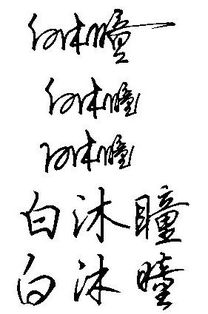 白沐瞳
白沐瞳
白沐瞳
白沐瞳
白沐瞳